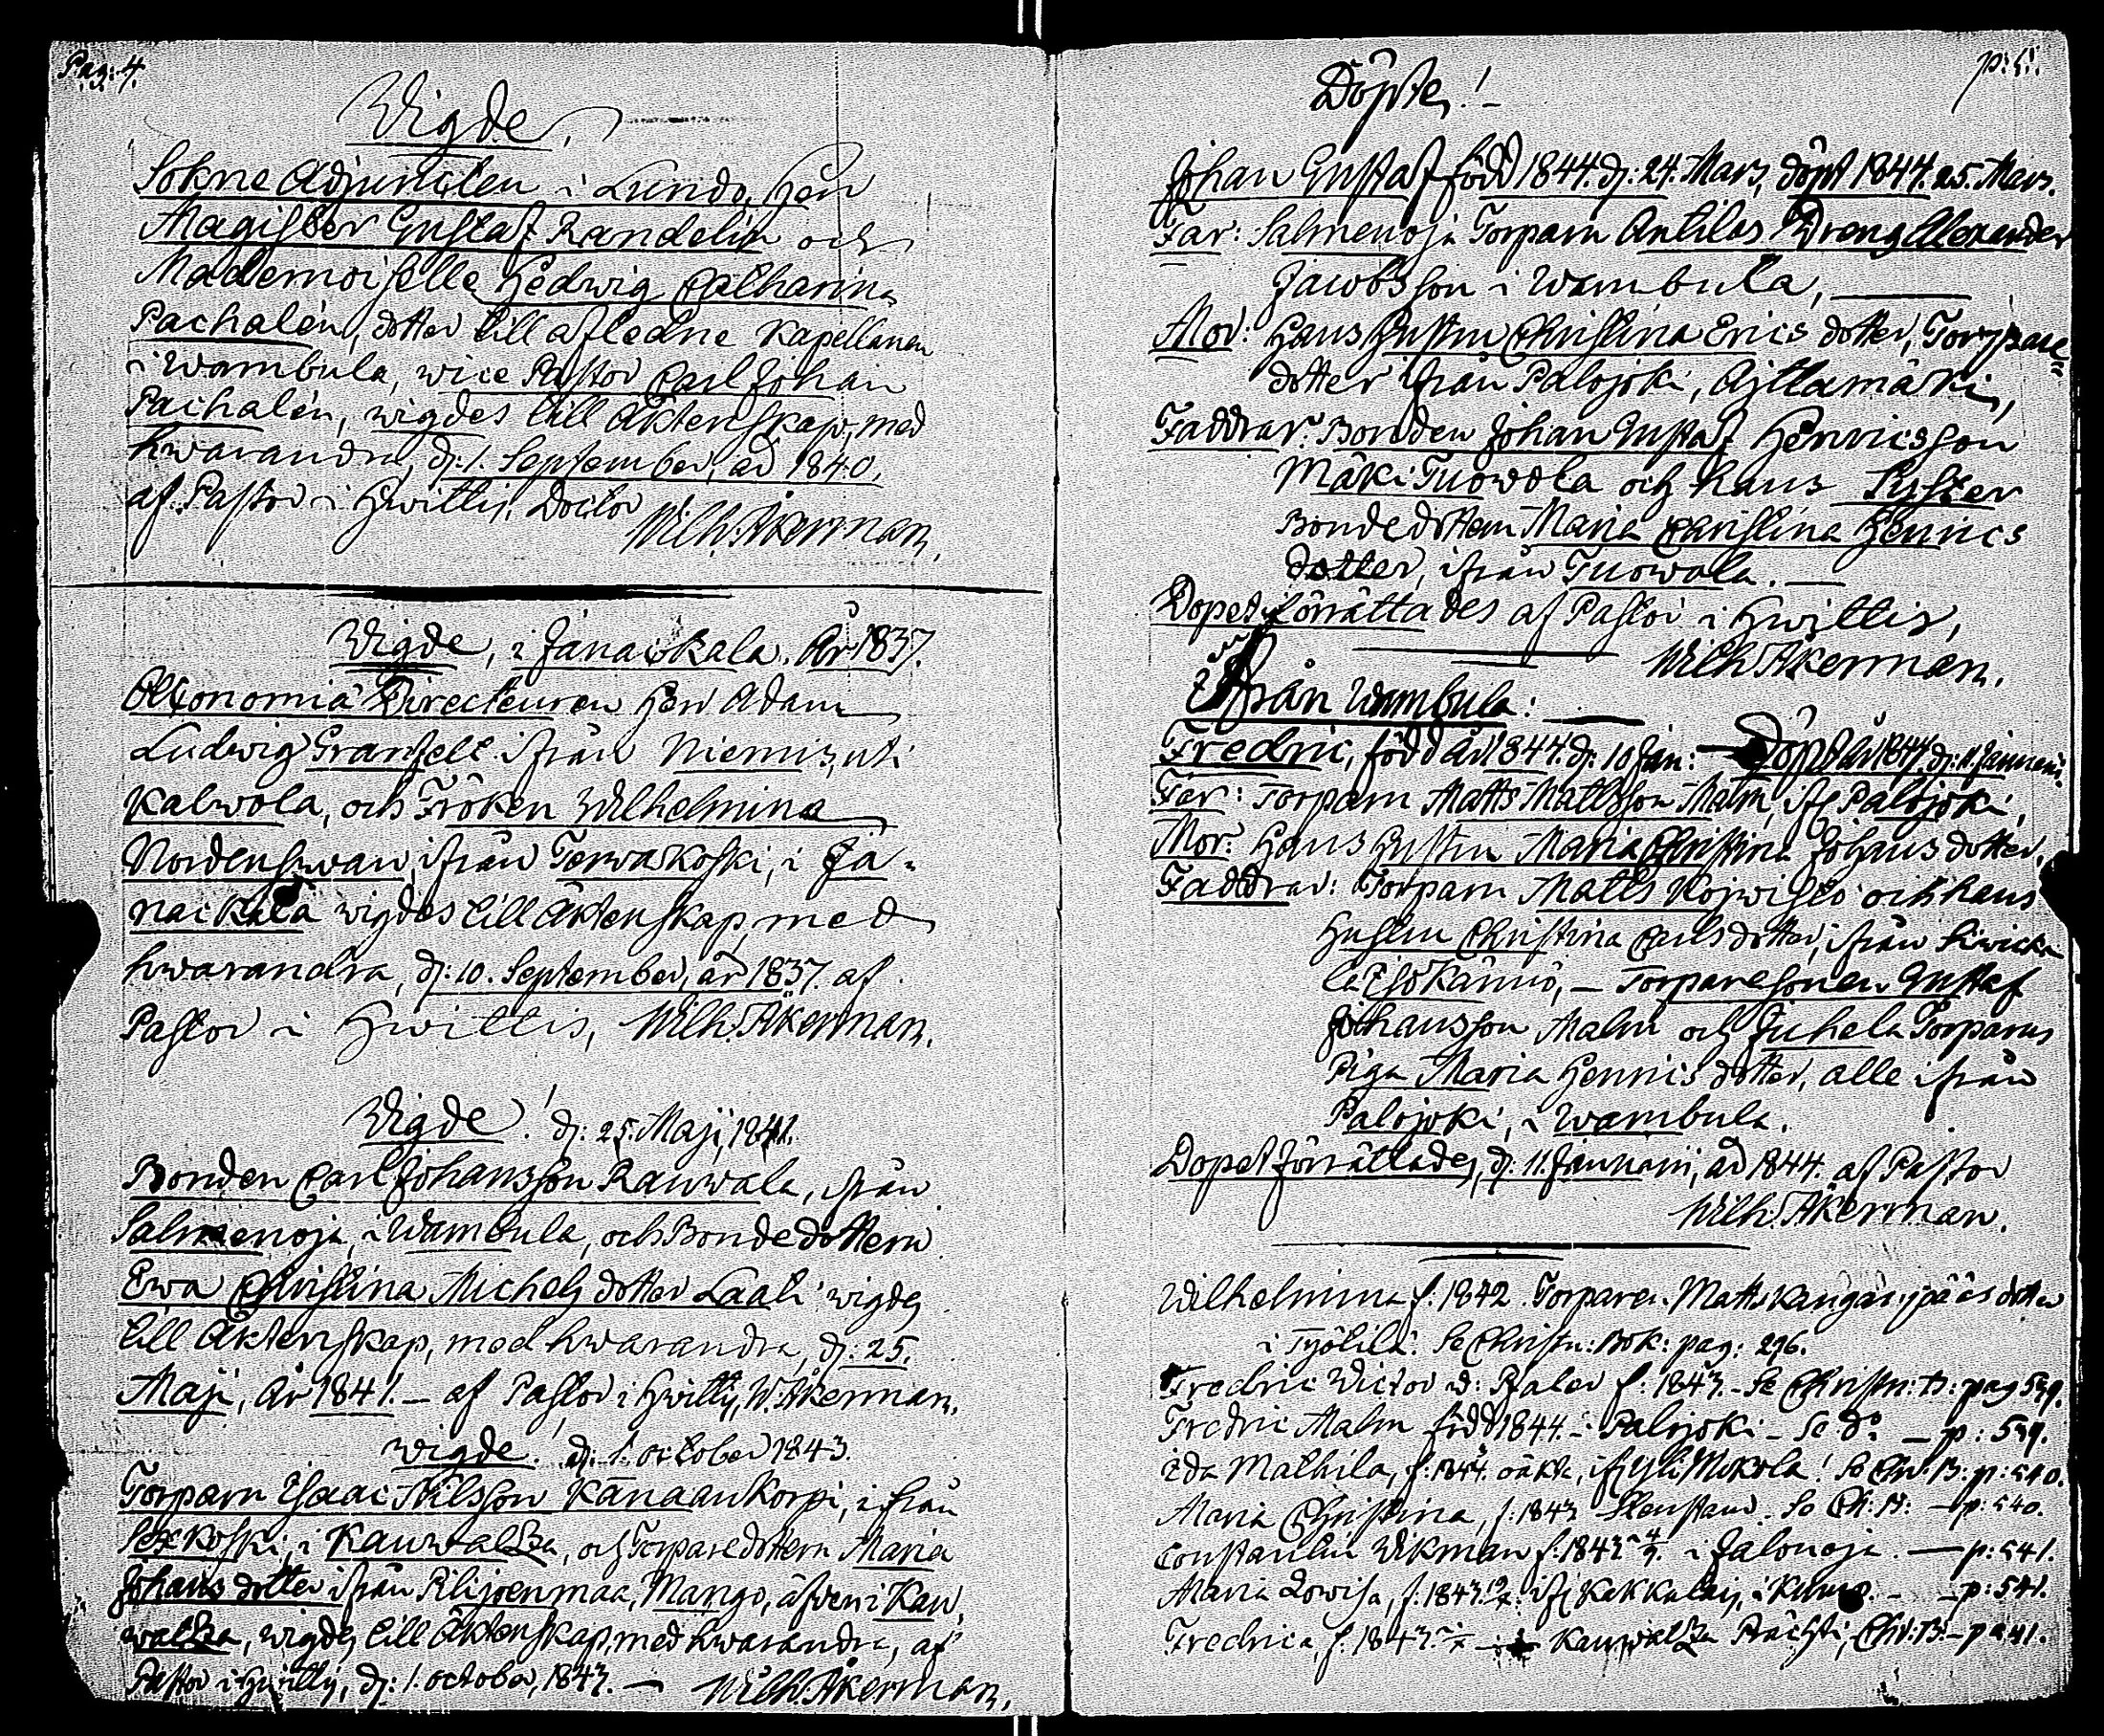 Pag: 4.
Wigde,
Sokne Adjuncten i Lundo, Herr
Magister Gustaf Randelin och
Mademoiselle Hedwig Catharina
Pachalén, dotter till afledne Kapellanen
i Wambula, vice Pastor Carl Johan
Pachalén, wigdes till Äktenskap, med
hwarandra, d: 1. September, år 1840,
af Pastor i Hwittis, Doctor
Wilh: Åkerman.
Wigde, i Janackala. År 1837.
Oeconomiæ Directeuren Herr Adam
Ludwig Granfelt ifrån Niemis, uti
Kalwola, och Fröken Wilhelmina
Nordenswan, ifrån Terwakoski, i Ja-
nackala wigdes till Äktenskap, med
hwarandra, d: 10. September, år 1837. af
Pastor i Hwittis, Wilh: Åkerman.
Wigde! d: 25. Maji, 1841.
Bonden Carl Johansson Rauwala, ifrån
Salmenoja, i Wambula, och Bondedottern
Ewa Christina Michels dotter Laati wigdes
till Äktenskap, med hwarandra, d: 25.
Maji, år 1841. — af Pastor i Hwittis, W. Åkerman.
Wigde! d: 1. October 1843.
Torparn Isaac Nilsson Kanaankorpi, ifrån
Sexkoski, i Kauwatza, och Torparedottern Maria
Johans dotter ifrån Pilijoenmaa, Mango, äfven i Kau
watza, wigdes till Äktenskap, med hwarandra, af
Pastor i Hwittis, d: 1. October, 1843. — Wilh: Åkerman.
p: 5.
Döpte!
Johan Gustaf född 1844. d: 24. Mars, döpt 1844. 25. Mars.
Far: Salmenoja Torparn Antilas Dreng Alexander
Jacobsson i Wambula,
Mor: Hans Hustru Christina Erics dotter, Torpare
dotter ifrån Palojoki, Äjttamäki,
Faddrar: Bonden Johan Gustaf Henricsson
Mäki Tuowola och hans Syster
Bondedottern Maria Christina Henrics
dotter, ifrån Tuowola. —
Dopet förrättades af Pastor i Hwittis,
Wilh: Åkerman.
Ifrån Wambula:
Fredric, född år 1844. d: 10 Jan: — Döpt år 1844. d: 11. Januari.
Far: Torparn Matts Mattsson Malm, ifr Palojoki,
Mor: Hans Hustru Maria Christina Johans dotter,
Faddrar: Torparn Matts Kojwisto och hans
Hustru Christina Carls dotter, ifrån
Isokännö, — Torparesonen Gustaf
Johansson Malm och Juhela Torparns
Piga Maria Henrics dotter, alle ifrån
Palojoki, i Wambula.
Dopet förrättades, d: 11. Januarii, år 1844. af Pastor
Wilh: Åkerman.
Wilhelmina f. 1842. Torparen Matts dotter
i Työtilä. Se Christn: Bok: pag: 296.
Fredric Victor f: 1843. — Se Christn: B: pag 539.
Fredric Malm född 1844. — Palojoki — Se d:o — p: 539.
Ida Mathilda, f: 1844. oäkta, ifr Yli Mikola! Se Chr: B: p: 540.
Maria Christina, f: 1843 Se Ch: B: — p: 540.
Constantin Wikman f: 1843 i Jalonoja. — p: 541.
Maria Lowisa, f: 1843. ifr — p: 541.
Fredrica, f: 1843. — Kauwatza Chr: B: — p 541.